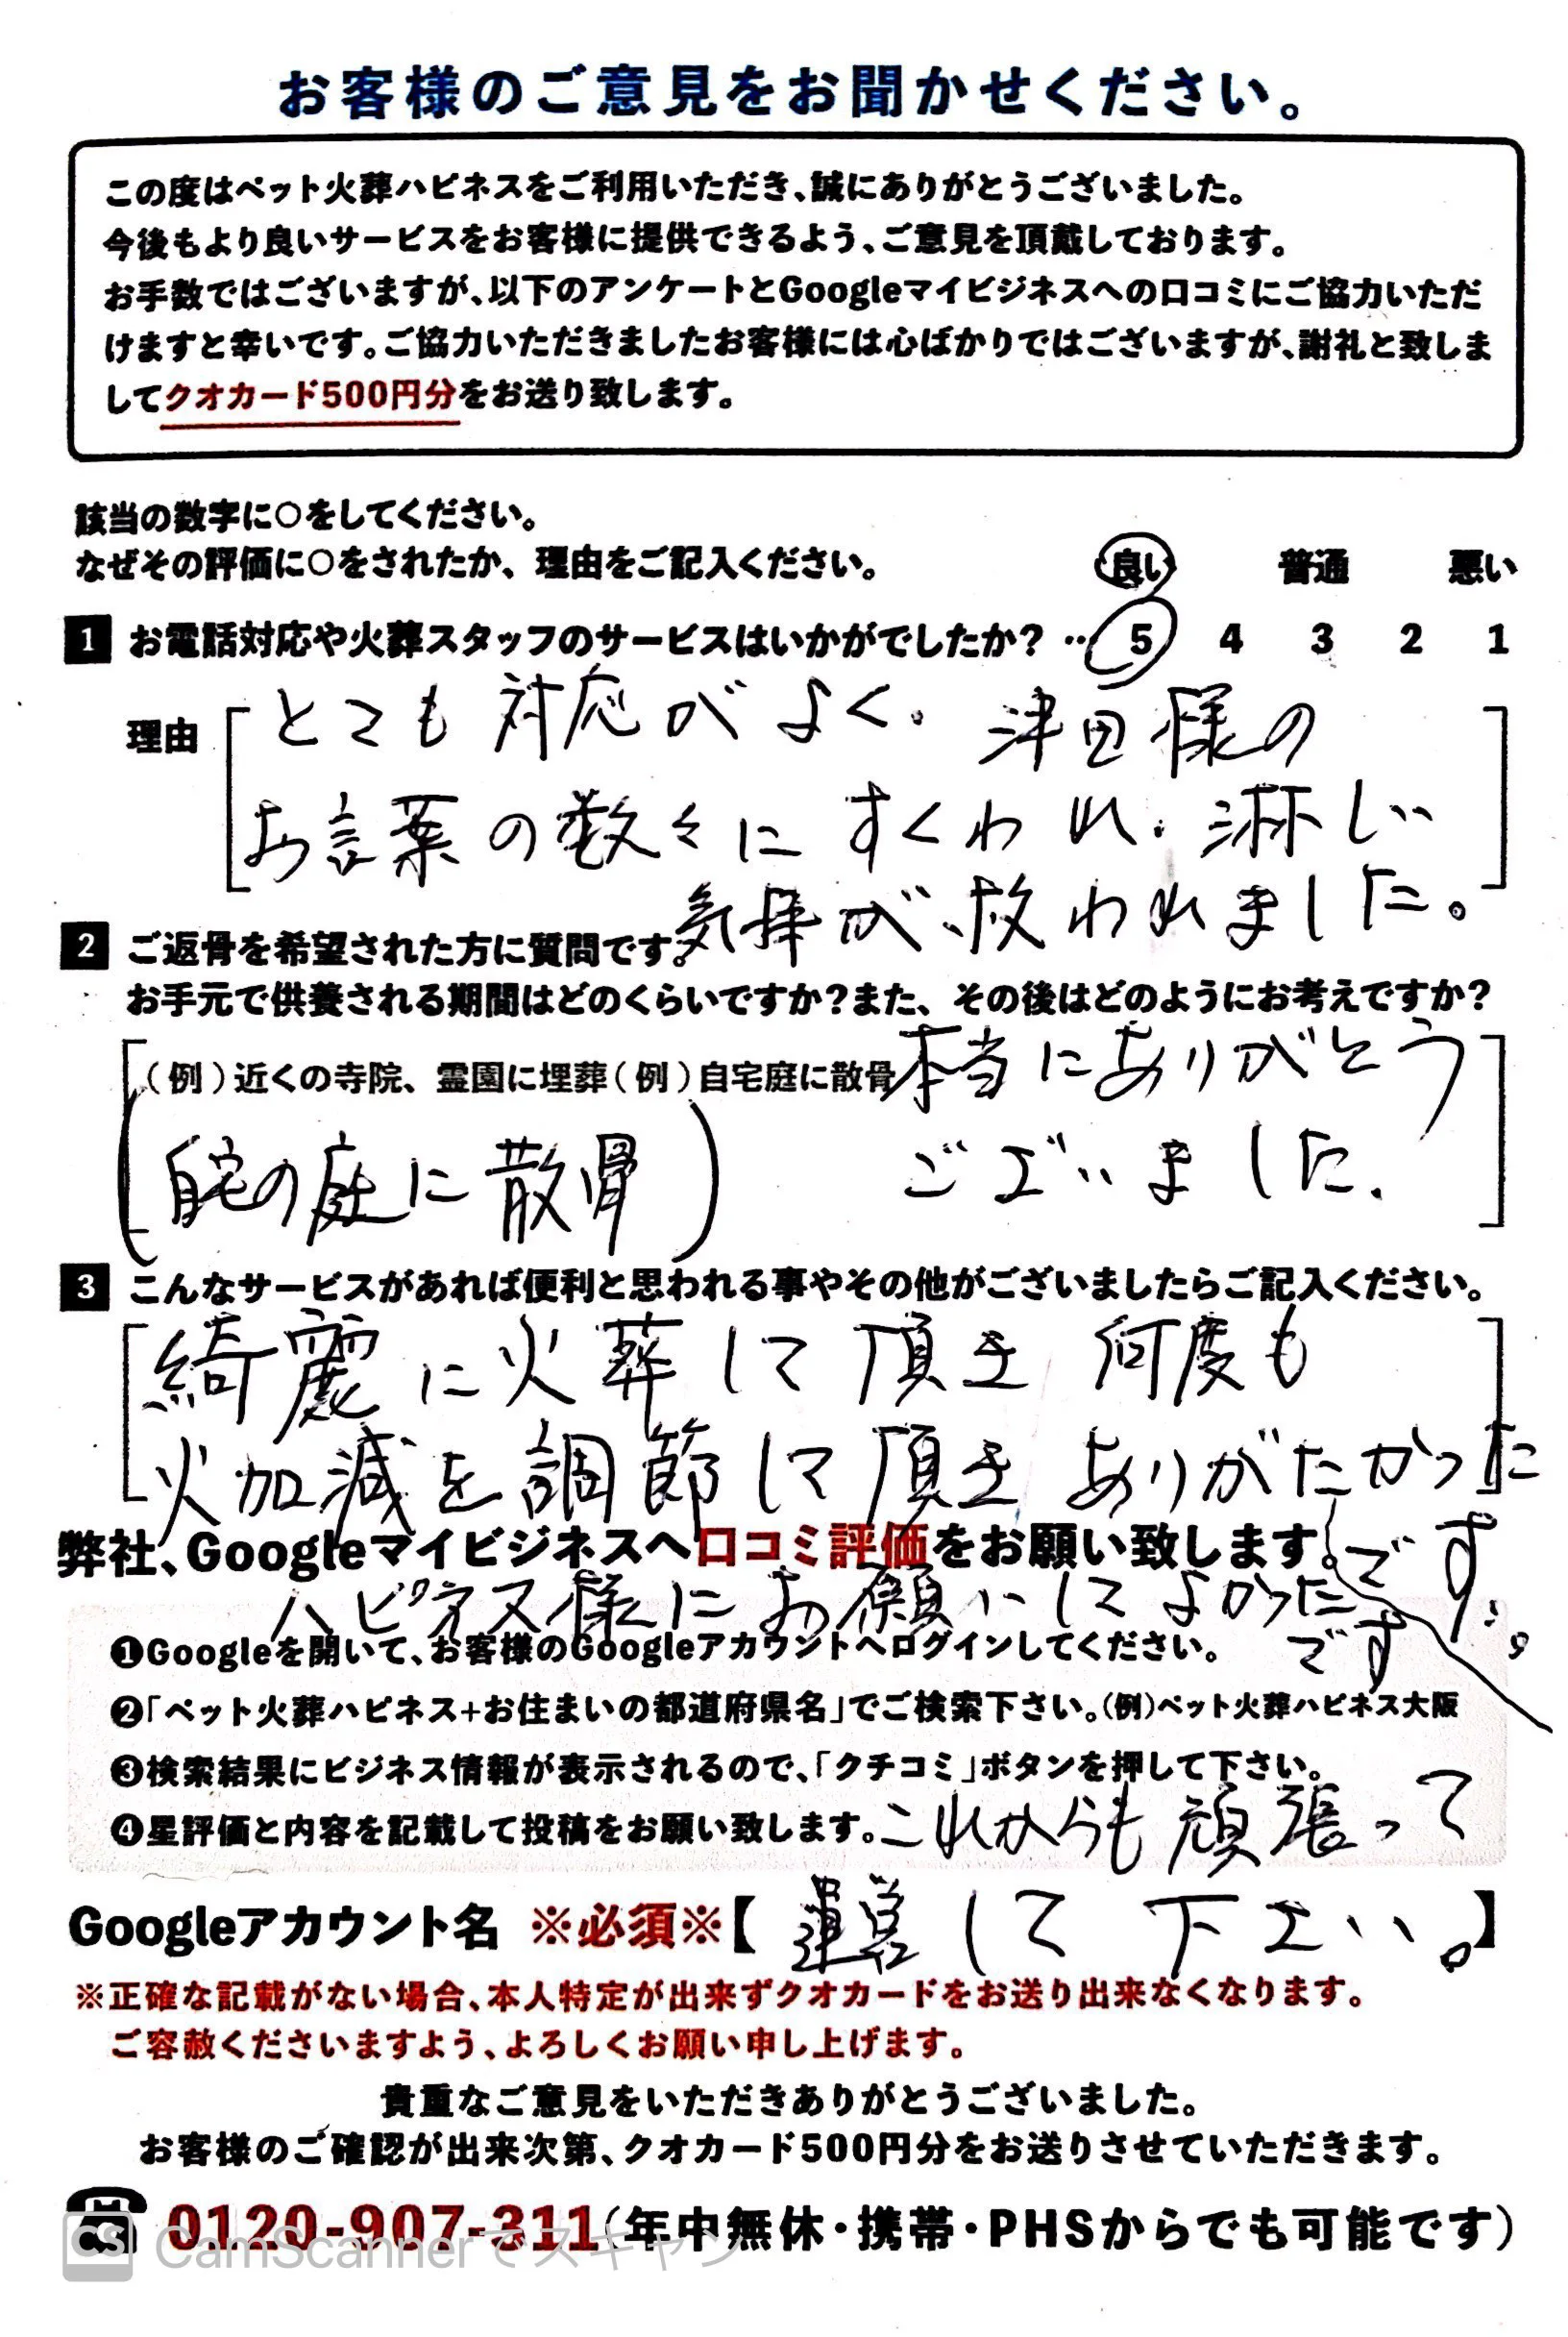 お客様のご意見をお聞かせください。
この度はペット火葬ハピネスをご利用いただき、誠にありがとうございました。
今後もより良いサービスをお客様に提供できるよう、ご意見を頂戴しております。
お手数ではございますが、以下のアンケートとGoogleマイビジネスへの口コミにご協力いただ
けますと幸いです。ご協力いただきましたお客様には心ばかりではございますが、謝礼と致しま
してクオカード500円分をお送り致します。
該当の数字に○をしてください。
なぜその評価に○をされたか、理由をご記入ください。 良い 普通 悪い
1 お電話対応や火葬スタッフのサービスはいかがでしたか? … 5 4 3 2 1
理由 とても対応がよく、津田様の
お言葉の数々にすくわれ、淋しい
気持が、救われました。
2 ご返骨を希望された方に質問です。
お手元で供養される期間はどのくらいですか?また、その後はどのようにお考えですか?
(例)近くの寺院、霊園に埋葬(例)自宅庭に散骨 本当にありがとう
(自宅の庭に散骨) ございました。
3 こんなサービスがあれば便利と思われる事やその他がございましたらご記入ください。
綺麗に火葬して頂き何度も
火加減を調節して頂きありがたかった
です。
弊社、Googleマイビジネスへ口コミ評価をお願い致します。
ハピネス様にお願いしてよかった
です
❶Googleを開いて、お客様のGoogleアカウントへログインしてください。
❷「ペット火葬ハピネス+お住まいの都道府県名」でご検索下さい。(例)ペット火葬ハピネス大阪
❸検索結果にビジネス情報が表示されるので、「クチコミ」ボタンを押して下さい。
❹星評価と内容を記載して投稿をお願い致します。これからも頑張って
Googleアカウント名 ※必須※【運営して下さい。】
※正確な記載がない場合、本人特定が出来ずクオカードをお送り出来なくなります。
ご容赦くださいますよう、よろしくお願い申し上げます。
貴重なご意見をいただきありがとうございました。
お客様のご確認が出来次第、クオカード500円分をお送りさせていただきます。
0120-907-311(年中無休・携帯・PHSからでも可能です)
CS CamScannerでスキャン